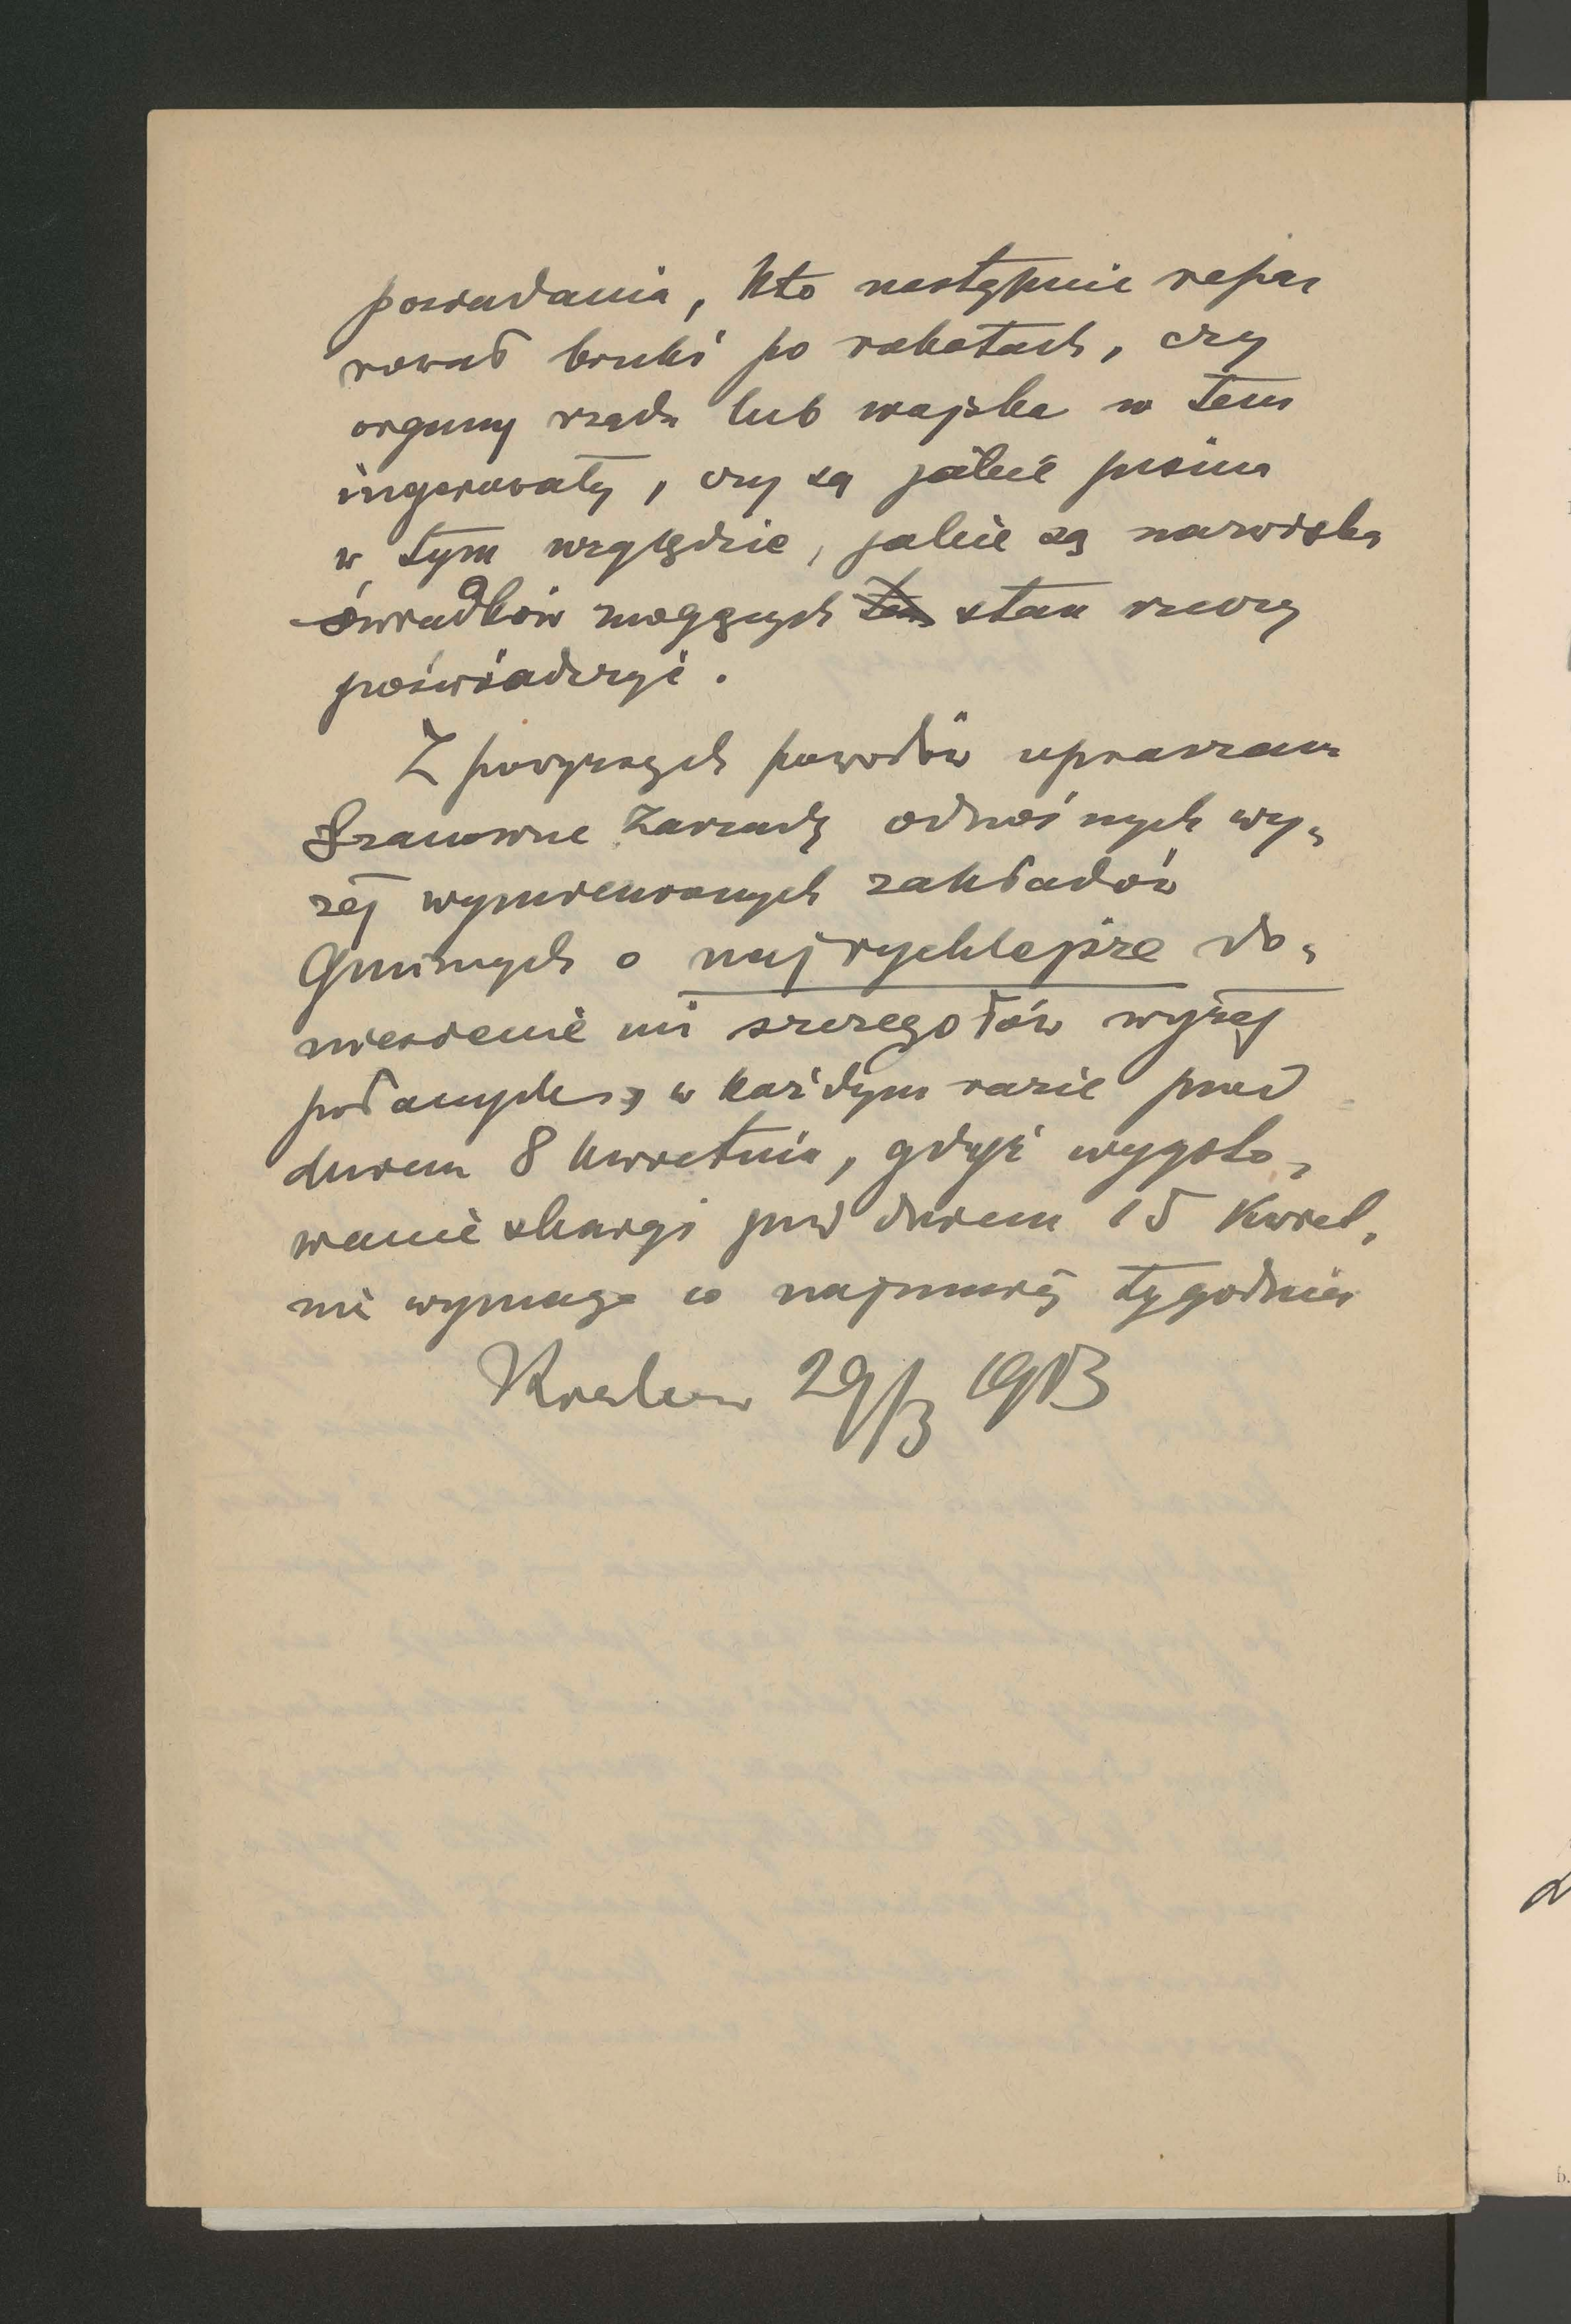 posiadania, kto następnie repa-
rował bruki po robotach, czy
organy rządu lub wojska w tem
ingerowały, czy są jakie pisma
w tym względzie, jakie są nazwiska
świadków mogących stan rzeczy
poświadczyć.
Z powyższych powodów upraszam
Szanowne Zarządy odnośnych wy-
żej wymienionych zakładów
Gminnych o najrychlejsze do-
niesienie mi szczegółów wyżej
podanych, w każdym razie przed
dniem 8 kwietnia, gdyż wygoto-
wanie skargi przed dniem 15 kwiet-
nia wymaga co najmniej tygodnia
Kraków 29/3 1913